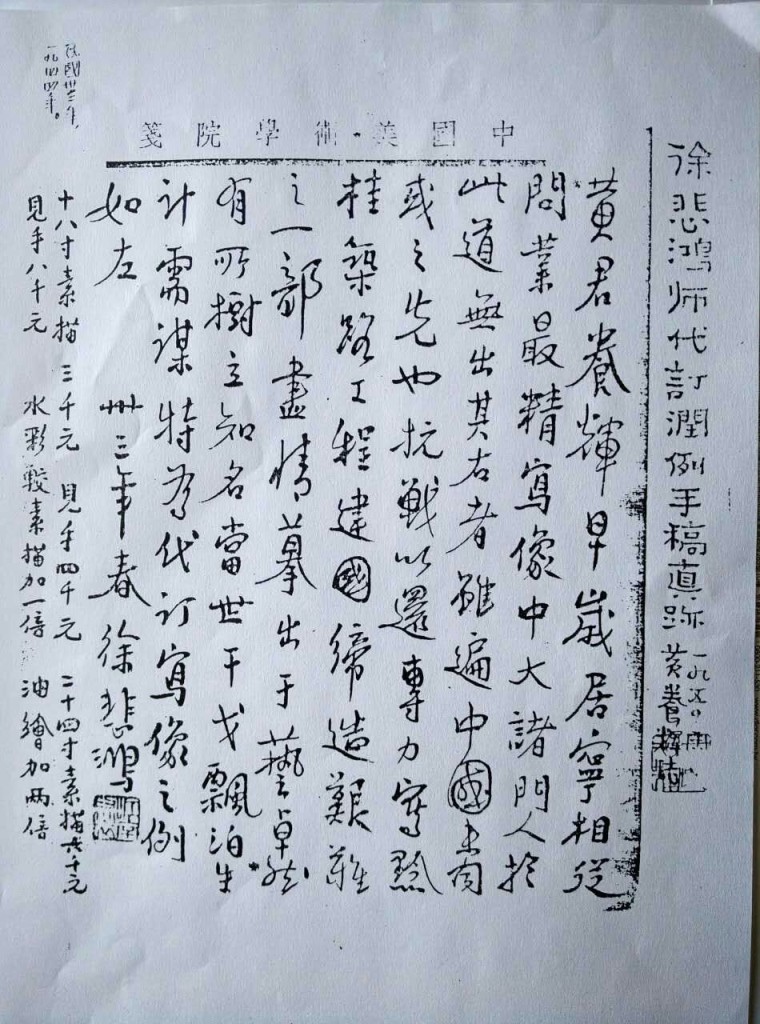 徐悲鸿师代訂潤例手稿真跡 一九五〇 黄養輝誌
中國美術學院箋
黄君養輝早歲居寧相從
問業最精寫像中大諸門人於
此道無出其右者雖遍中國未有
或之先也抗戰以還專力寫黔
桂築路工程建國締造艱難
之一部盡情摹出于藝卓然
有所樹立知名當世干戈飄泊生
計需謀特為代订寫像之例
如左 卅三年春徐悲鴻
十八寸素描 三千元 見手四千元 二十四寸素描六千元
見手八千元 水彩較素描加一倍 油繪加两倍
民國卅三年,
一九四四年。